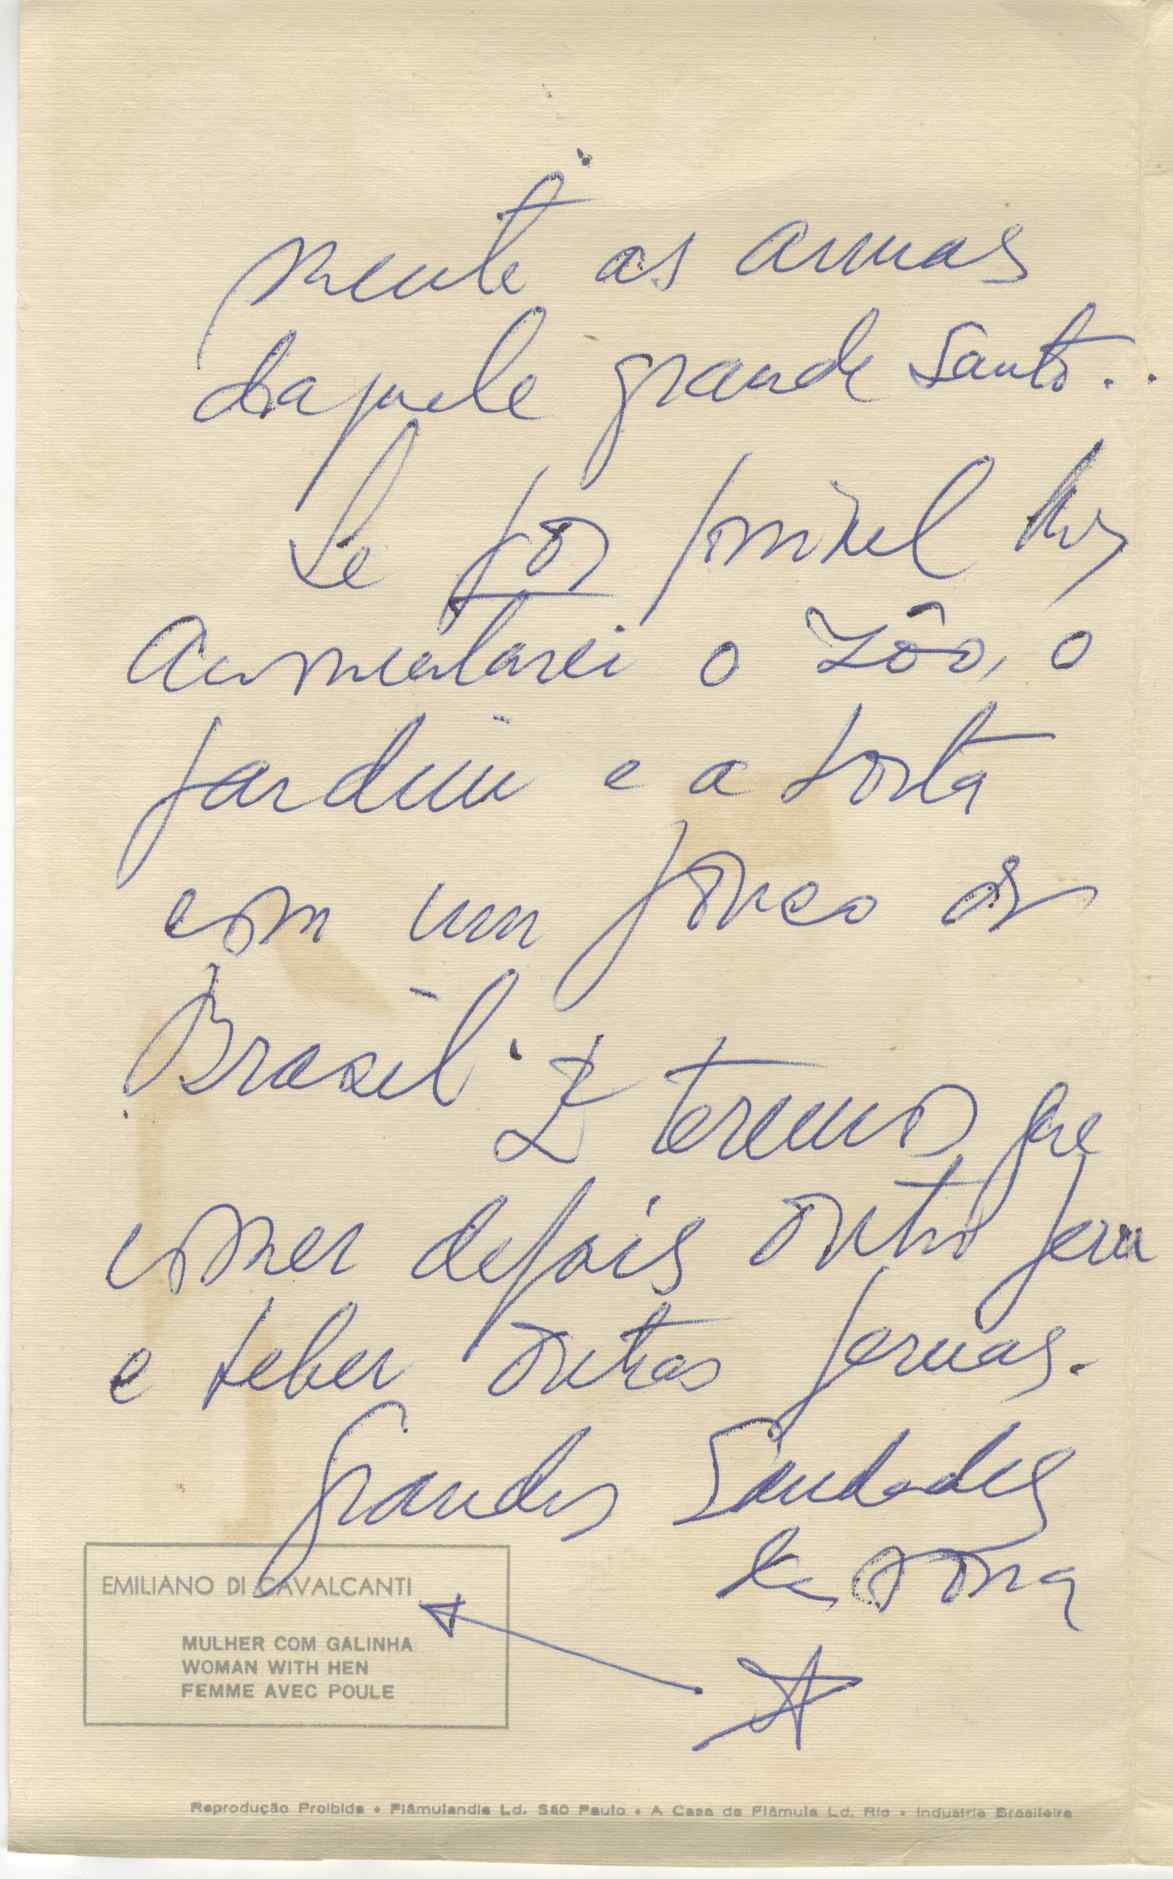 mente as armas
daquele grande Santo..
Se for possivel lhes
aumentarei o Zôo, o
jardim e a
com um pouco de
Brasil. E teremos que
comer depois outro peru
e beber outras
Grandes Saudades
da
EMILIANO DI CAVALCANTI
MULHER COM GALINHA
WOMAN WITH HEN
FEMME AVEC POULE
Reprodução Proibida • Flâmulandia Ld. São Paulo • A Casa da Flâmula Ld. Rio • Industria Brasileira